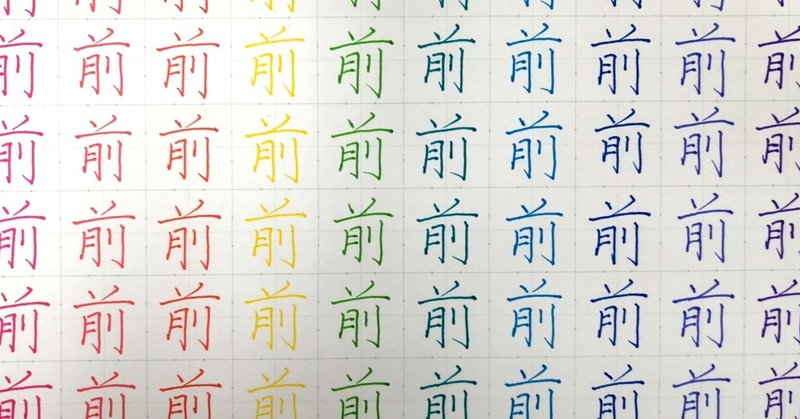 前前前前前前前前前前
前前前前前前前前前前
前前前前前前前前前前
前前前前前前前前前前
前前前前前前前前前前